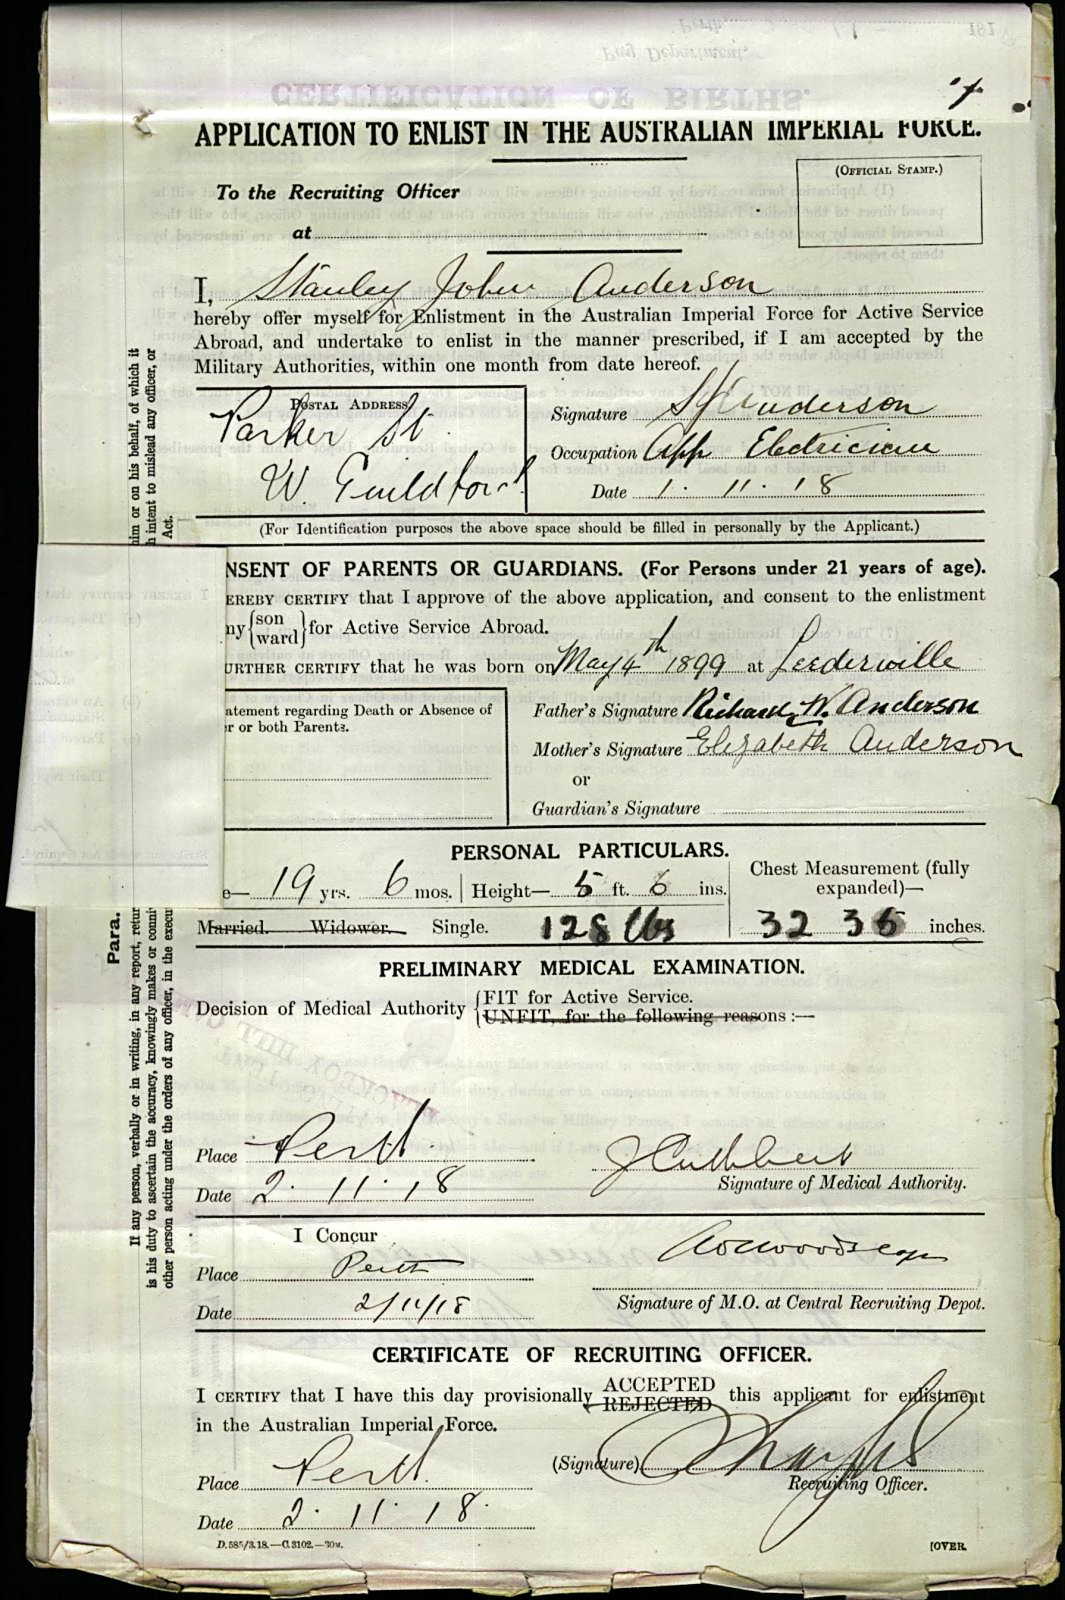 APPLICATION TO ENLIST IN THE AUSTRALIAN IMPERIAL FORCE.
(OFFICIAL STAMP.)
To the Recruiting Officer
at
I, Stanley John Anderson
hereby offer myself for Enlistment in the Australian Imperial Force for Active Service
Abroad, and undertake to enlist in the manner prescribed, if I am accepted by the
Military Authorities, within one month from date hereof.
POSTAL ADDRESS
Parker St.
W. Guildford
Signature S J Anderson
Occupation App Electrician
Date 1. 11. 18
(For Identification purposes the above space should be filled in personally by the Applicant.)
NSENT OF PARENTS OR GUARDIANS. (For Persons under 21 years of age).
EREBY CERTIFY that I approve of the above application, and consent to the enlistment
ny {son ward} for Active Service Abroad.
URTHER CERTIFY that he was born on May 4th 1899 at Leederville
atement regarding Death or Absence of
r or both Parents.
Father's Signature Richard W. Anderson
Mother's Signature Elizabeth Anderson
or
Guardian's Signature
PERSONAL PARTICULARS.
e— 19 yrs. 6 mos. Height— 5 ft. 6 ins.
Chest Measurement (fully
expanded)—
Married. Widower. Single. 128 lbs
32 35 inches.
PRELIMINARY MEDICAL EXAMINATION.
Decision of Medical Authority {FIT for Active Service.
UNFIT, for the following reasons :—
Place Perth.
Date 2. 11. 18
J Cuthbert
Signature of Medical Authority.
I Concur
Place Perth
Date 2/11/18
Signature of M.O. at Central Recruiting Depot.
CERTIFICATE OF RECRUITING OFFICER.
I CERTIFY that I have this day provisionally ACCEPTED REJECTED this applicant for enlistment
in the Australian Imperial Force.
Place Perth.
Date 2. 11. 18.
(Signature)
Recruiting Officer.
D.585/3.18.—C.3102.—30M.
[OVER.
Para.
If any person, verbally or in writing, in any report, retur
is his duty to ascertain the accuracy, knowingly makes or conni
other person acting under the orders of any officer, in the execu
him or on his behalf, of which it
h intent to mislead any officer, or
Act.